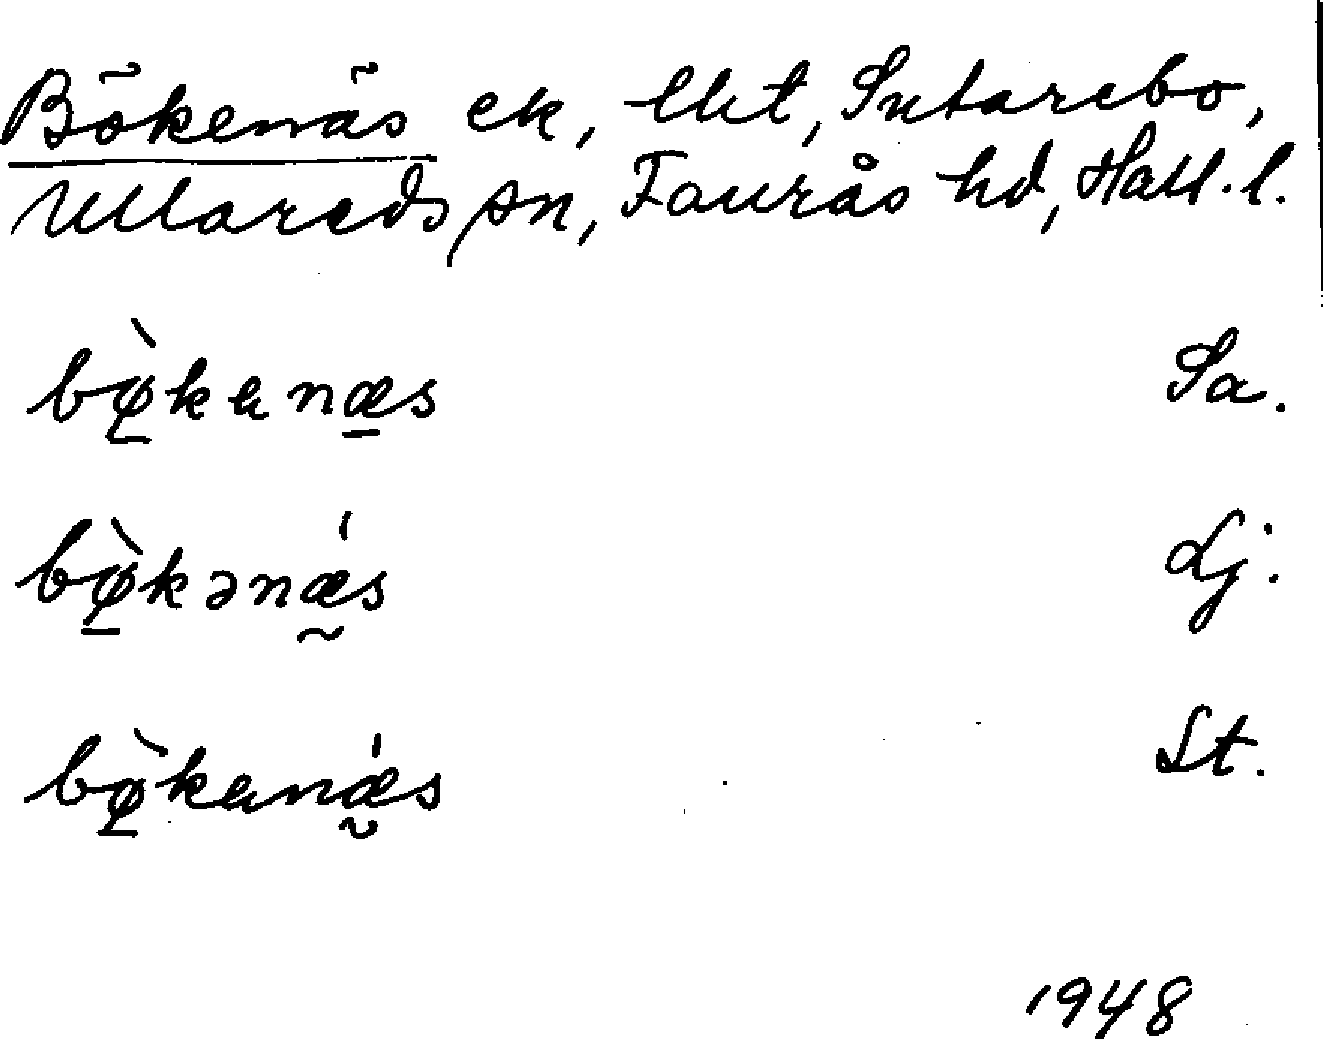 Bökenäs ek, lht, Sutarebo,
Ullareds sn, Faurås hd, Hall. l.
bø̱̀kenæ̱s Sa.
bø̱̀kənǽ̰s Lj.
bø̱̀kenǽ̰s St.
1948